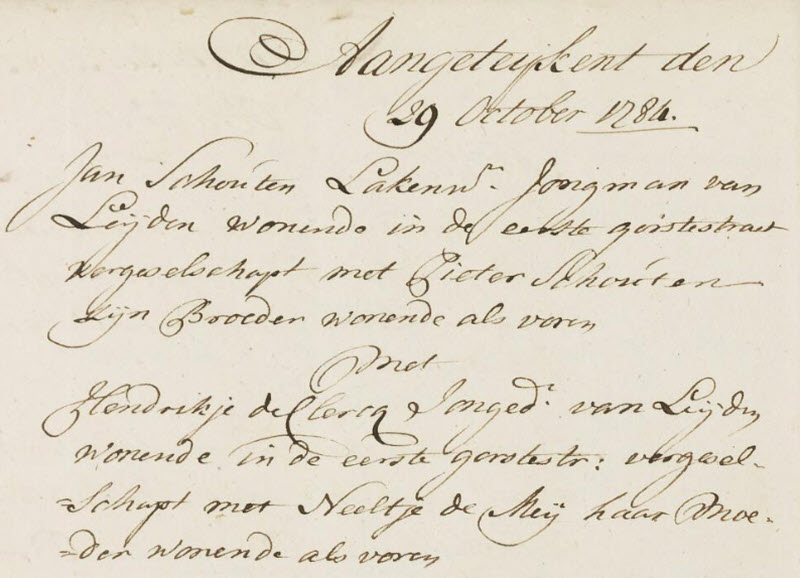 Aangeteijkent den
29 October 1784.
Jan Schouten Lakenwr. Jongman van
Leijden wonende in de eerste gorstestraet
vergeselschapt met Pieter Schouten
zijn Broeder wonende als voren
met
Hendrikje de Clercq Jonged. van Leijden
wonende in de eerste gorstestr: vergesel-
=schapt met Neeltje de Meij haar Moe-
=der wonende als voren